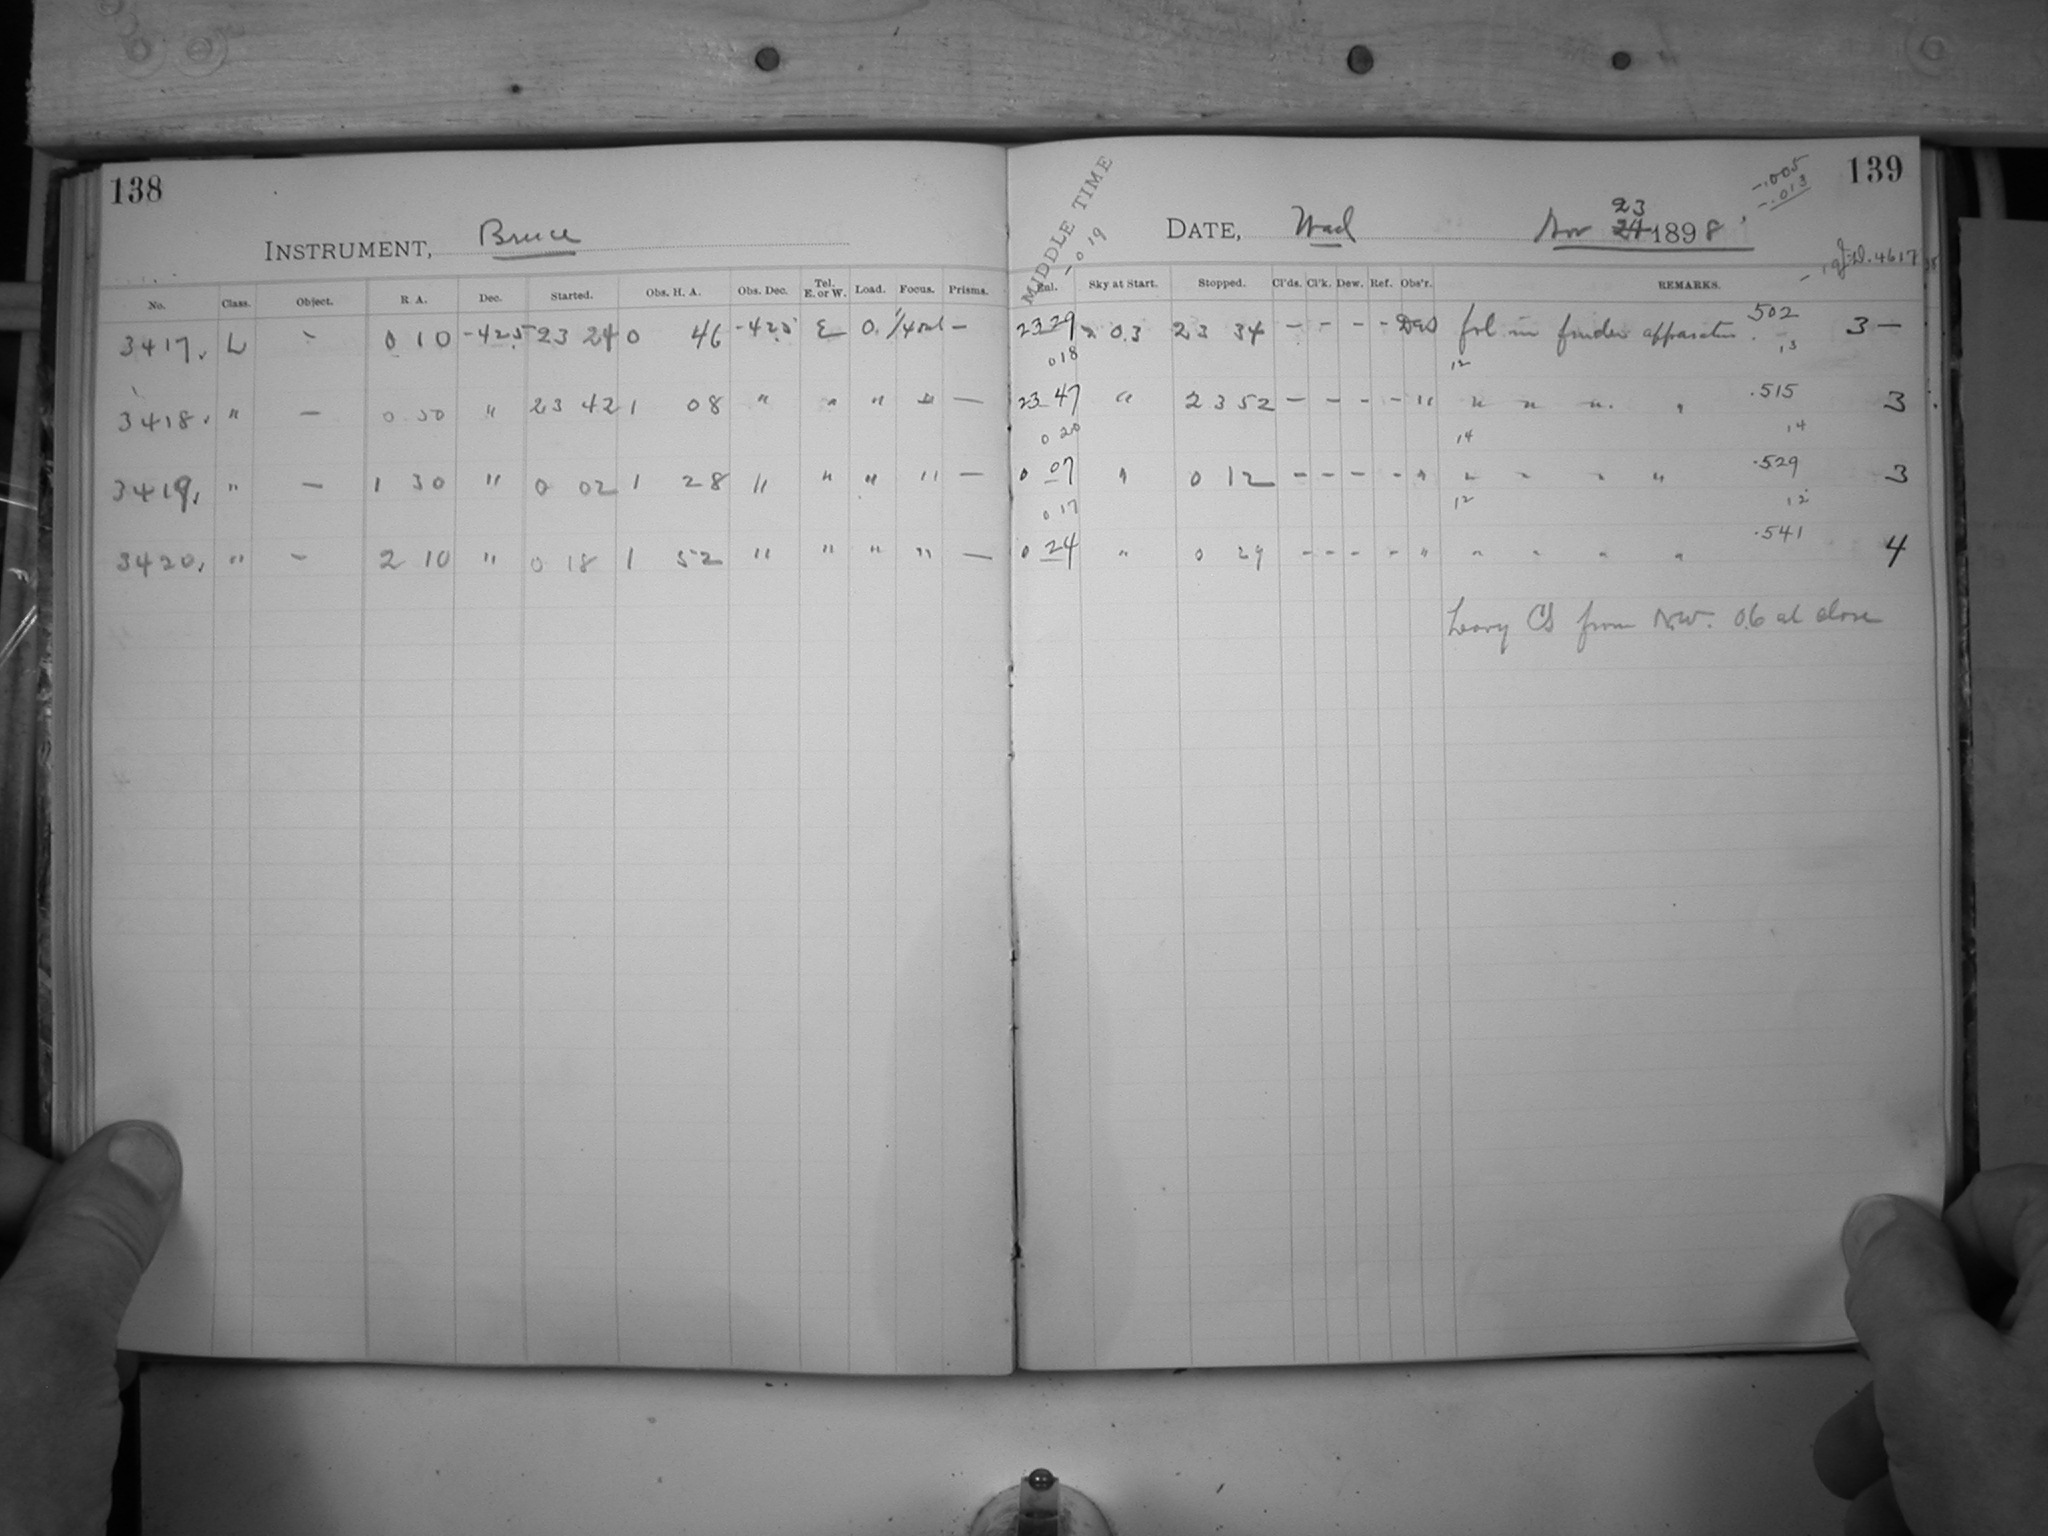 138
INSTRUMENT, Bruce
No. Class. Object. R A. Dec. Started. Obs. H. A. Obs. Dec. Tel. E. or W. Load. Focus. Prisms.
3417. L - 0 10 -42.5 23 24 0 46 -42.5 E 0. —
3418. " — 0 50 " 23 42 1 08 " " " " —
3419. " — 1 30 " 0 02 1 28 " " " " —
3420. " - 2 10 " 0 18 1 52 " " " " —
139
-.005
-.013
MIDDLE TIME
-0 19
DATE, Wed Nov 23 24 1898
J.D. 4617
Sky at Start. Stopped. Cl'ds. Cl'k. Dew. Ref. Obs'r. REMARKS.
23 29 0.3 23 34 - - - - fol in finder apparatus .502 3 —
018 12 13
23 47 " 23 52 - - - - " " " " " .515 3
0 20 14 14
0 07 " 0 12 - - - - " " " " " .529 3
0 17 12 12
0 24 " 0 29 - - - - " " " " " .541 4
Heavy CS from N.W. 0.6 at close